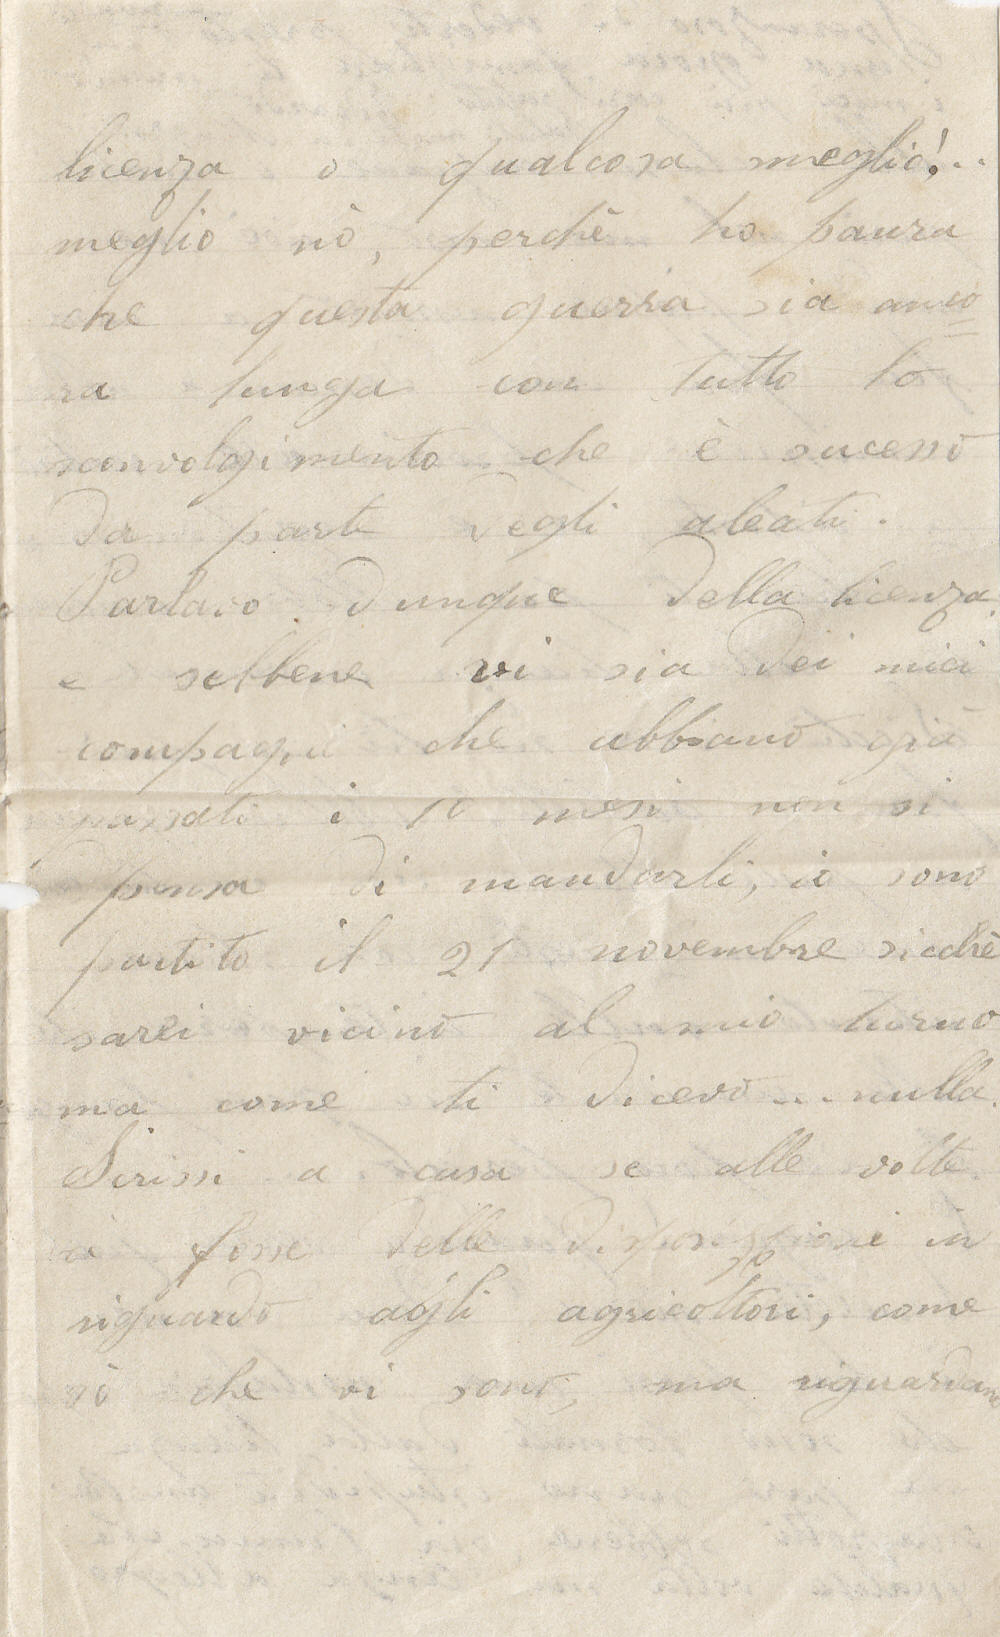 licenza o qualcosa meglio!..
meglio nò, perchè ho paura
che questa guerra sia anco=
ra lunga con tutto lo
sconvolgimento che è sucesso
da parte degli aleati.
Parlavo dunque della licenza,
e sebbene vi sia dei miei
compagni che abbiano già
passati i 10 mesi non si
pensa di mandarli, io sono
partito il 21 novembre sicchè
sarei vicino al mio turno
ma come ti dicevo... nulla.
Scrissi a casa se alle volte
vi fosse delle disposizioni in
riguardo agli agricoltori, come
sò che vi sono, ma riguardano